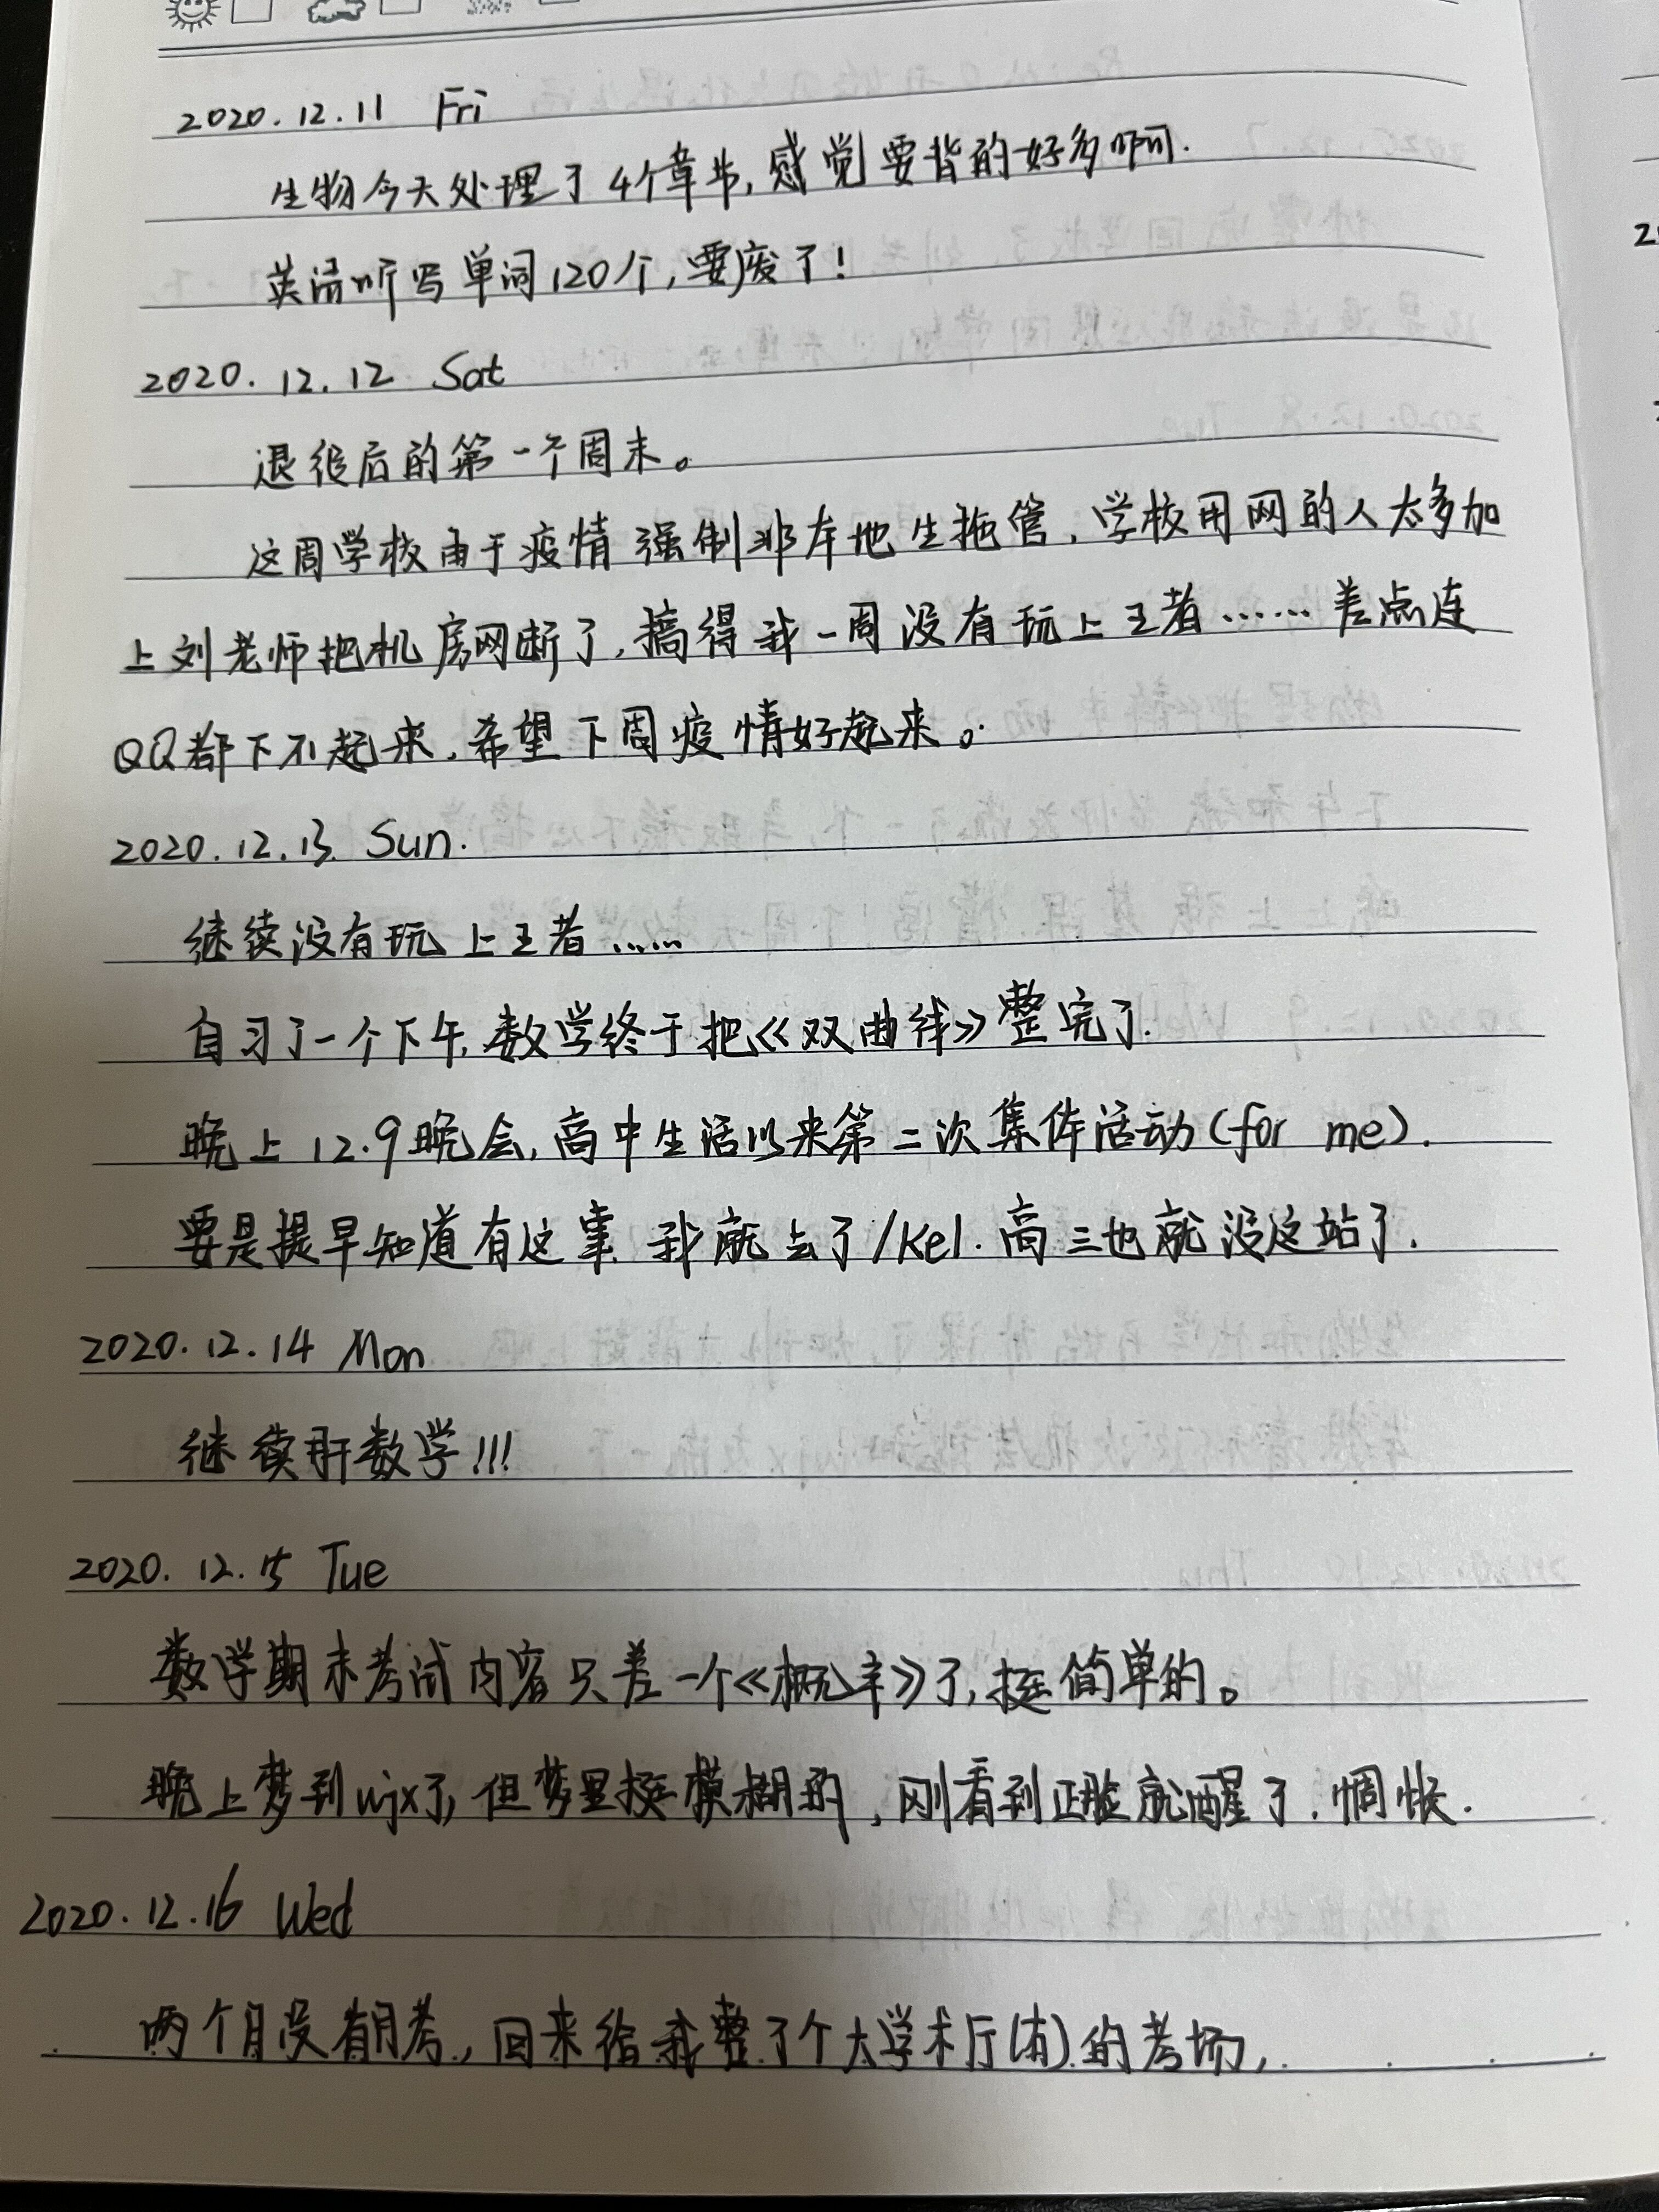 2020.12.11 Fri
生物今天处理了4个章节,感觉要背的好多啊.
英语听写单词120个,要废了!
2020.12.12 Sat
退役后的第一个周末。
这周学校由于疫情强制非本地生拖管,学校用网的人太多加
上刘老师把机房网断了,搞得我一周没有玩上王者……差点连
QQ都下不起来.希望下周疫情好起来。
2020.12.13. Sun.
继续没有玩上王者……
自习了一个下午,数学终于把《双曲线》整完了.
晚上12.9晚会,高中生活以来第二次集体活动(for me).
要是提早知道有这事.我就去了/kel.高三也就没这站了.
2020.12.14 Mon
继续肝数学!!!
2020.12.15 Tue
数学期末考试内容只差一个《概率》了,挺简单的。
晚上梦到wjx了,但梦里挺模糊的,刚看到正脸就醒了.惆怅.
2020.12.16 Wed
两个月没有月考,回来给我整了个大学术厅(右)的考场,